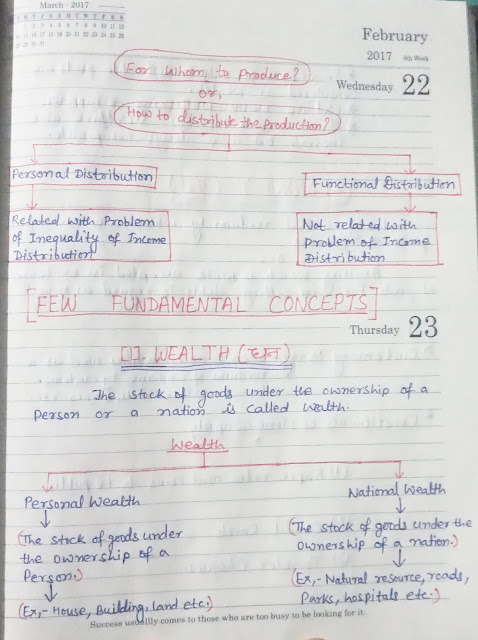 March · 2017
February
2017 8th Week
Wednesday 22
For whom to produce?
or,
How to distribute the production?
Personal Distribution
Functional Distribution
Related with Problem
of Inequality of Income
Distribution
Not related with
problem of Income
Distribution
[FEW FUNDAMENTAL CONCEPTS]
Thursday 23
[1]. WEALTH (धन)
The stock of goods under the ownership of a
Person or a nation is called wealth.
Wealth
Personal Wealth
National Wealth
(The stock of goods under
the ownership of a
Person.)
(The stock of goods under the
ownership of a nation.)
(Ex,- House, Building, land etc.)
(Ex,- Natural resource, roads,
Parks, hospitals etc.)
Success usually comes to those who are too busy to be looking for it.